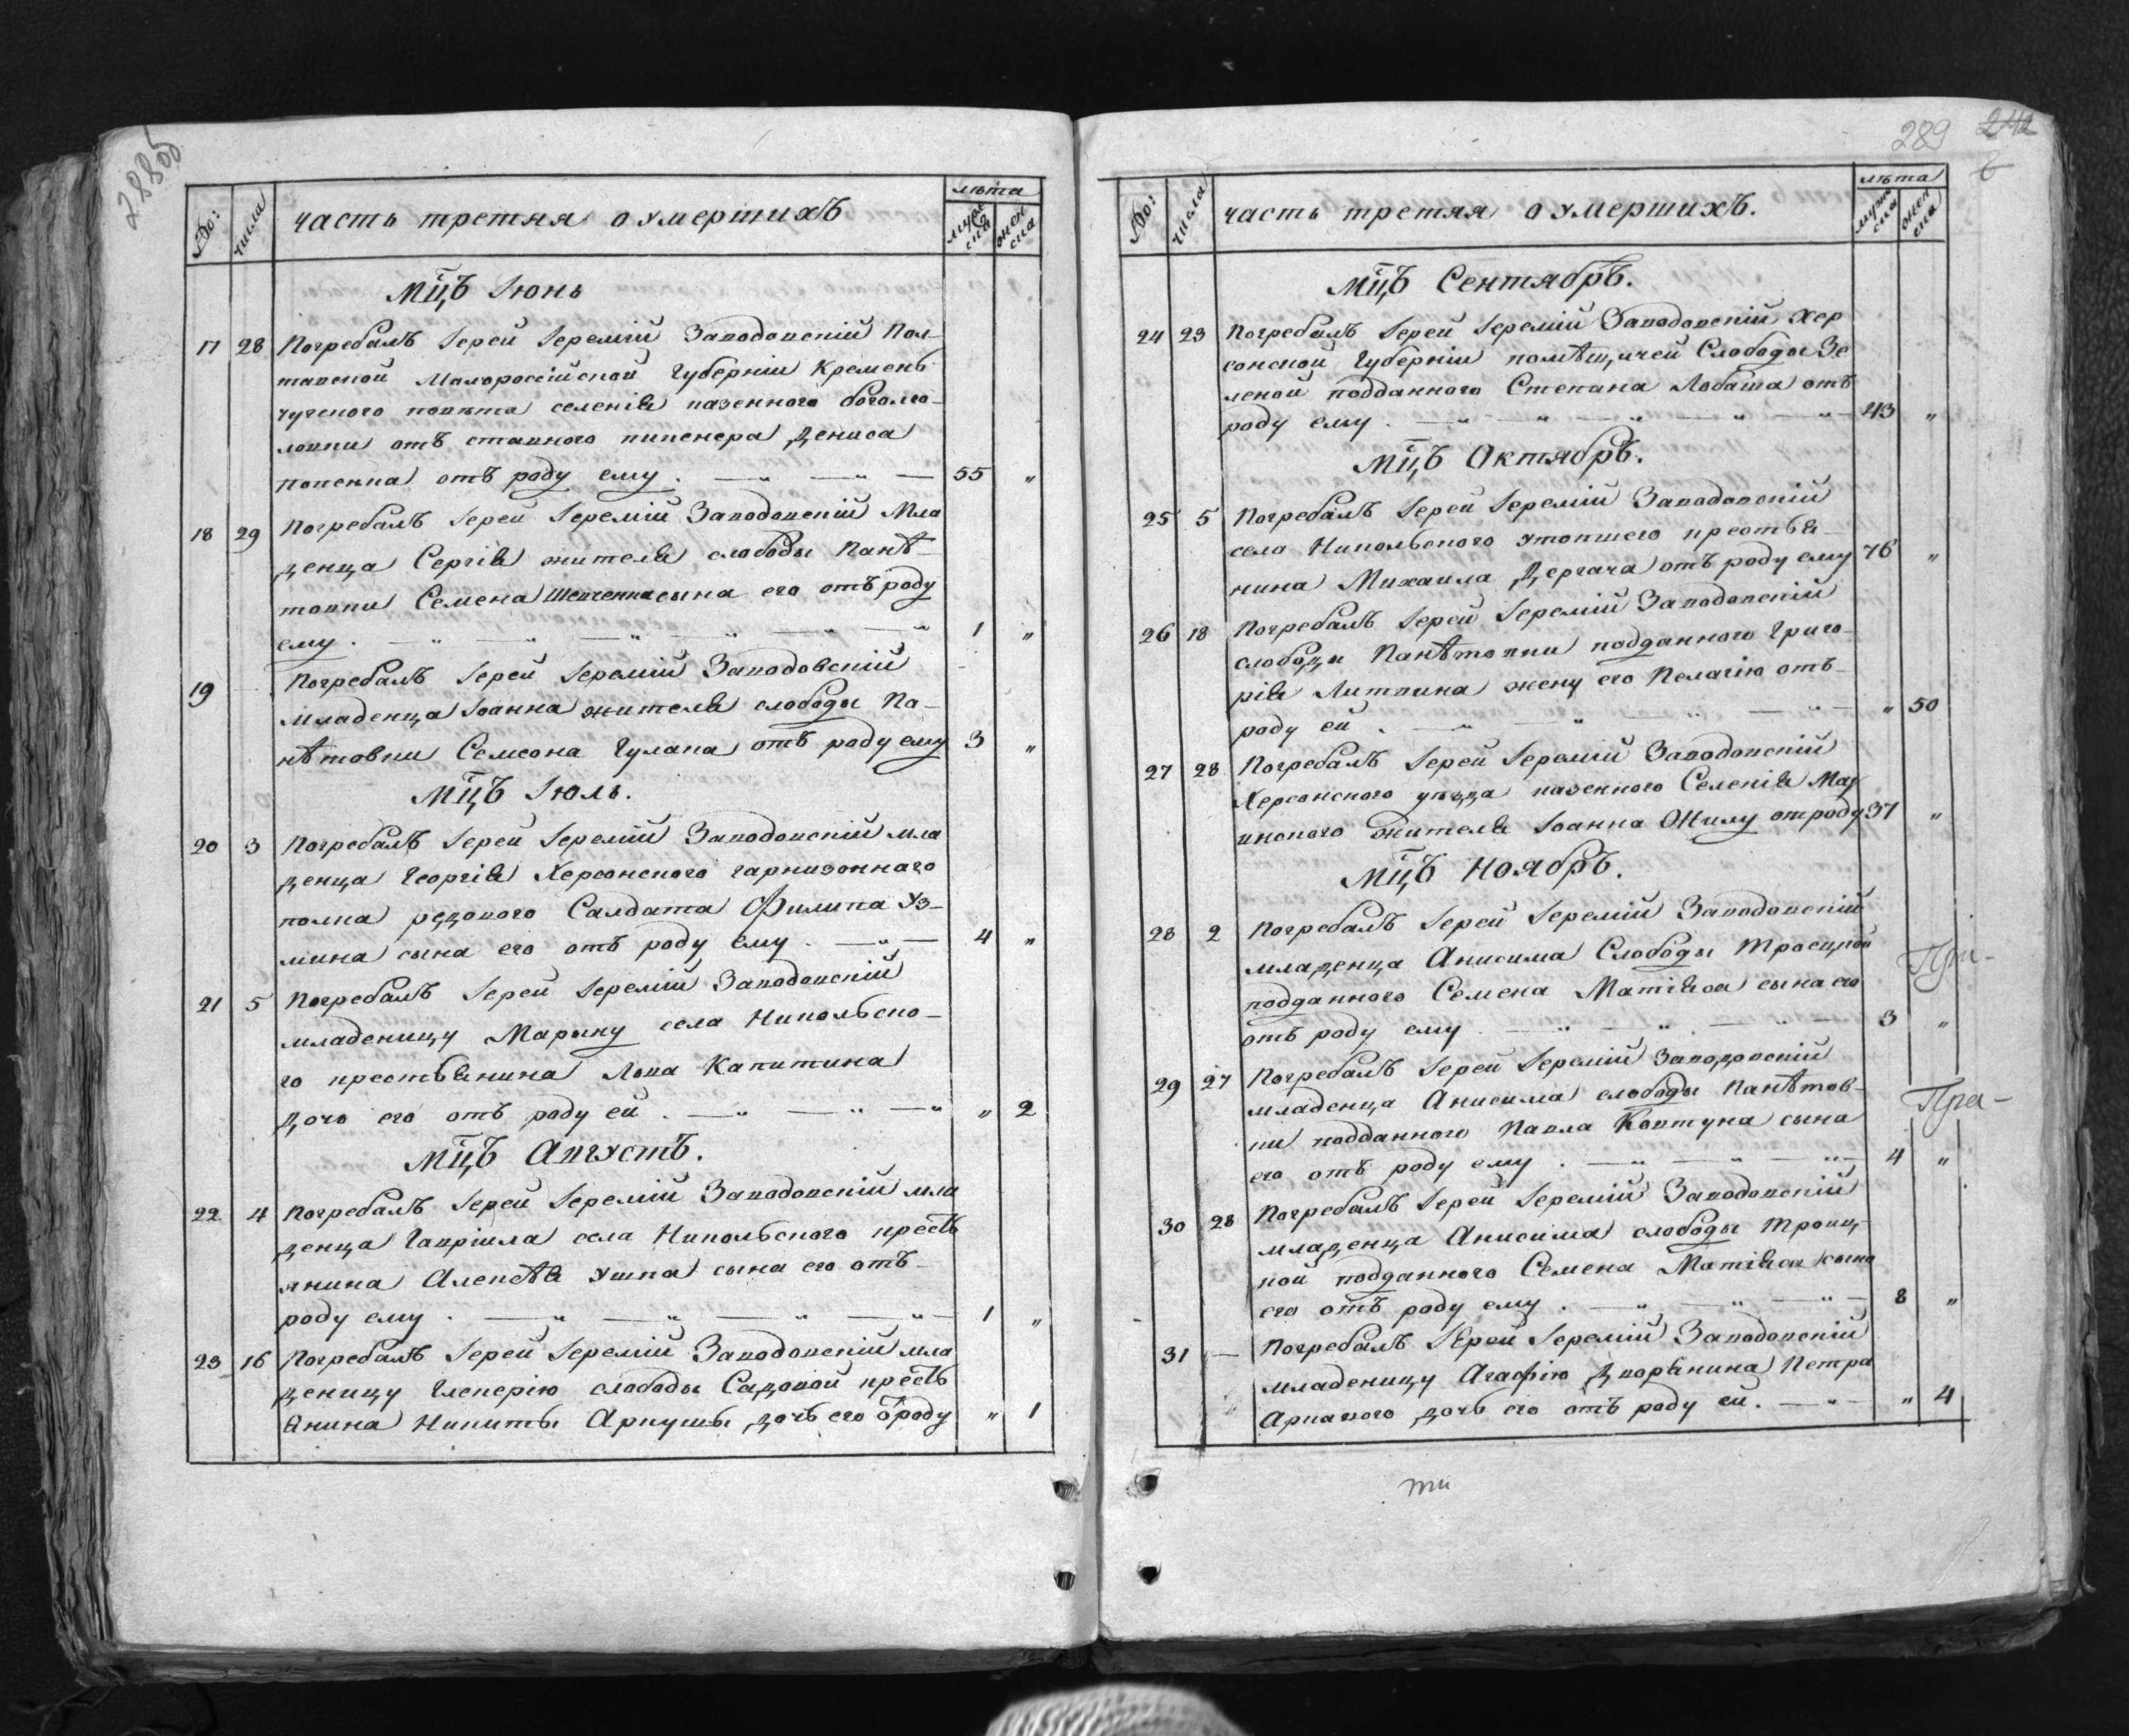 288 об
№: числа часть третяя о умершихъ лѣта мужеска женска
Мц҃ъ Іюнь
17 28 Погребалъ Іерей Іеремій Заводовскій Пол-
тавской Малороссійской Губерніи Кремень
чугского повѣта селенія казенного боголю-
ловки отъ ставного пикенера Дениса
попенка отъ роду ему . — " — " — 55 "
18 29 Погребалъ Іерей Іеремій Заводовскій Мла
денца Сергія жителя слободы Панѣ-
товки Семена Шевченка сына его отъ роду
ему . — " — " — " — " — " — " 1 "
19 Погребалъ Іерей Іеремій Заводовскій
младенца Іоанна жителя слободы Па-
нѣтовки Семсона Гулака отъ роду ему 3 "
Мц҃ъ Іюль.
20 3 Погребалъ Іерей Іеремій Заводовскій мла
денца Георгія Херсонского гарнизоннаго
полка редового Салдата Филипа Уз-
мина сына его отъ роду ему . — " — 4 "
21 5 Погребалъ Іерей Іеремій Заводовскій
младеницу Марыну села Никольско-
го крестьянина Лова Капитина
дочо его отъ роду ей . — " — " — " " 2
Мц҃ъ Августъ.
22 4 Погребалъ Іерей Іеремій Заводовскій мла
денца Гавріила села Никольского крестъ
янина Алексѣя Ушка сына его отъ
роду ему . — " — " — " — " — 1 "
23 16 Погребалъ Іерей Іеремій Заводовскій мла
деницу Гликерію слободы Садовой крестъ
янина Никиты Аркушы дочъ его ѿроду " 1
289 242
№: числа часть третяя о умершихъ. лѣта мужеска женска
Мц҃ъ Сентябръ.
24 23 Погребалъ Іерей Іеремій Заводовскій Хер
сонской Губерніи помѣщичей Слободы Зе
леной подданного Степана Лобаша отъ
роду ему . — " — " — " — " — " — 43 "
Мц҃ъ Октябръ.
25 5 Погребалъ Іерей Іеремій Заводовскій
села Никольского утопшего крестья-
нина Михаила Дергача отъ роду ему 76 "
26 18 Погребалъ Іерей Іеремій Заводовскій
слободы Панѣтовки подданного Григо-
рія Литвина жену его Пелагію отъ-
роду ей . — " — " — " — " — " 50
27 28 Погребалъ Іерей Іеремій Заводовскій
Херсонского уѣзда казенного Селенія
жителя Іоанна отроду 37 "
Мц҃ъ Ноябръ.
28 2 Погребалъ Іерей Іеремій Заводовскій
младенца Анисима Слободы Троецкой
подданного Семена Матіяса сына его
отъ роду ему . — " — " — " — 3 "
29 27 Погребалъ Іерей Іеремій Заводовскій
младенца Анисима слободы Панѣтов-
ки подданного Павла Ковтуна сына
его отъ роду ему . — " — " — " — 4 "
30 28 Погребалъ Іерей Іеремій Заводовскій
младенца Анисима слободы Троиц-
кой подданного Семена Матіяса сына
его отъ роду ему . — " — " — " — 8 "
31 — Погребалъ Іерей Іеремій Заводовскій
младеницу Агафію Дворянина Петра
Аркавого дочь его отъ роду ей . — " — " 4